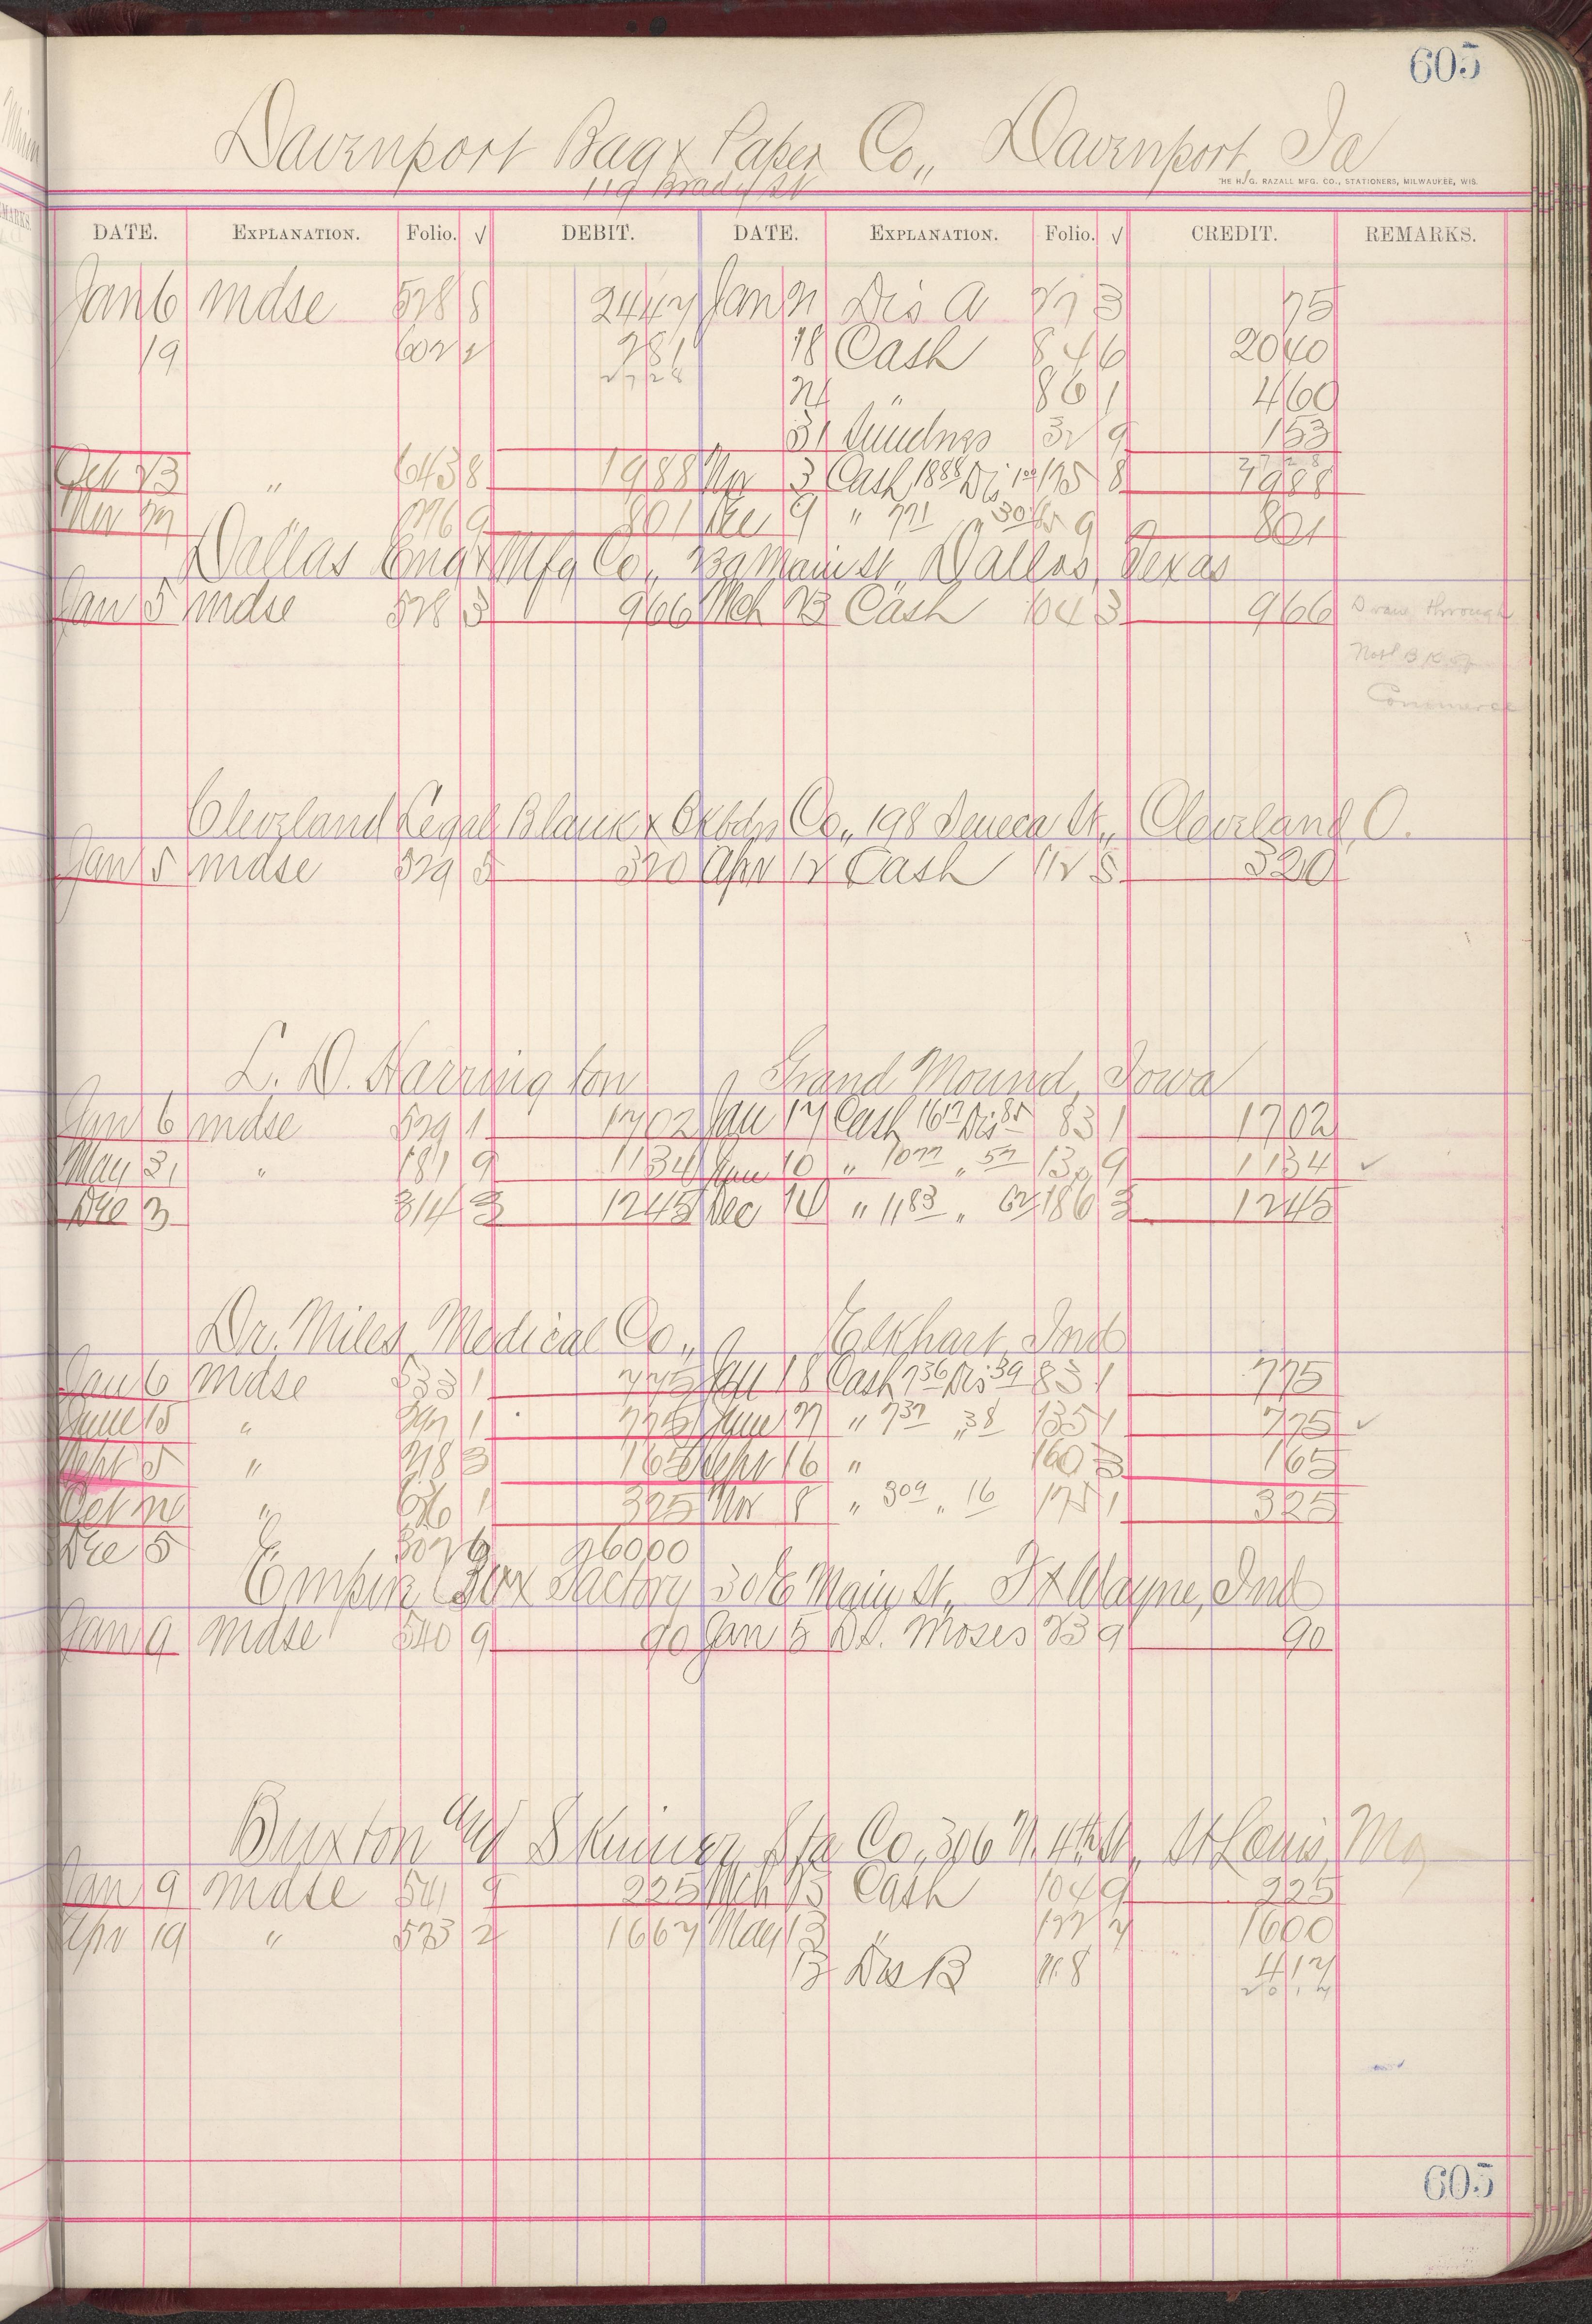 605
Davenport Bag & Paper Co,, Davenport, Ia
119 Brady St
THE H. G. RAZALL MFG. CO., STATIONERS, MILWAUKEE, WIS.
DATE. EXPLANATION. Folio. √ DEBIT. DATE. EXPLANATION. Folio. √ CREDIT. REMARKS.
Jan 6 mdse 528 8 2447 Jan 21 Dis A 27 3 75
19 602 2 281 18 Cash 84 6 2040
2728 21 " 86 1 460
31 Sundries 32 9 153
Oct 23 " 643 8 1988 Nov 3 Cash 1888 Dis 100 175 8 1988
Nov 27 " 9 801 Dec 9 " 771 " 30 9 801
Dallas Eng & Mfg Co,, Main St, Dallas, Texas
Jan 5 mdse 528 3 966 Mch 23 Cash 104 3 966 Drawn through
Natl Bk of
Commerce
Cleveland Legal Blank & Co,, 198 Seneca St,, Cleveland, O.
Jan 5 mdse 529 5 320 Apr 12 Cash 112 5 320
L. D. Harrington Grand Mound, Iowa
Jan 6 mdse 529 1 1702 Jan 17 Cash 1617 Dis 85 83 1 1702
May 31 " 181 9 1134 Jun 10 " 1077 " 57 13 9 1134 ✓
Dec 3 314 3 1245 Dec 14 " 1183 " 62 186 3 1245
Dr. Miles Medical Co,, Elkhart, Ind
Jan 6 mdse 533 1 775 Jan 18 Cash 736 Dis 39 83 1 775
June 15 " 1 775 June 27 " 737 " 38 135 1 775 ✓
Sept 5 " 218 3 165 Sept 16 " 160 3 165
Oct " 1 325 Nov 8 " 309 " 16 175 1 325
Dec 5 307 6 26000
Empire Box Factory 30 E Main St, Ft Wayne, Ind
Jan 9 mdse 540 9 90 Jan 5 Moses 23 9 90
Buxton and Skinner Sta Co, 306 N. 4th St, St Louis, Mo
Jan 9 mdse 541 9 225 Mch 15 Cash 104 9 225
Apr 19 " 573 2 1667 May 13 " 127 1600
13 Dis B 8 417
2017
605